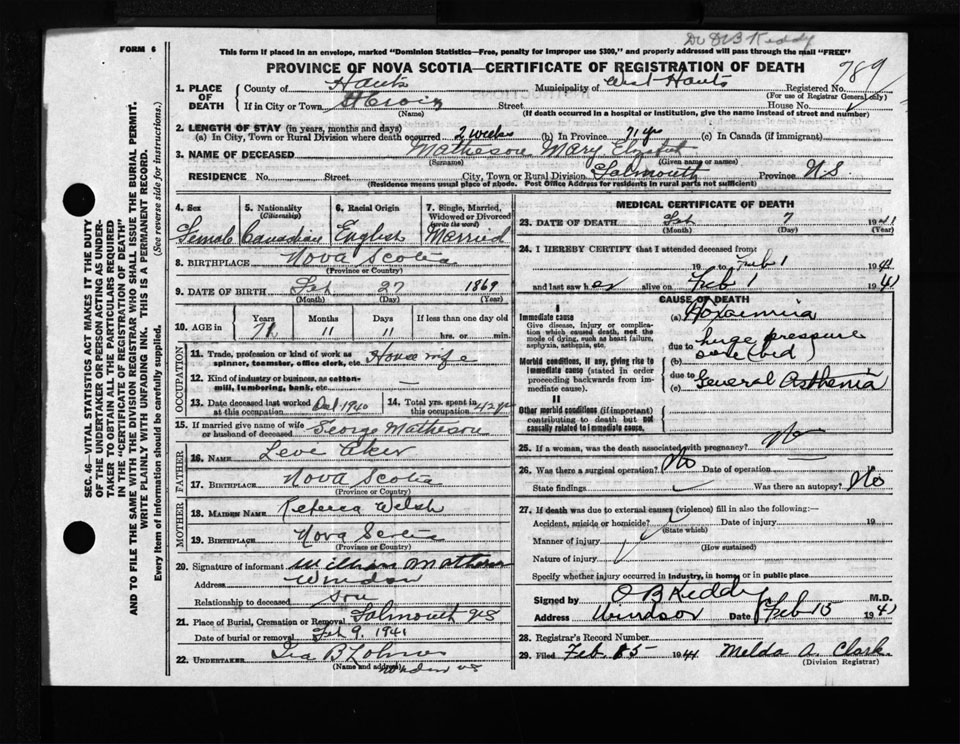 Dr O B Keddy
FORM 6
This form if placed in an envelope, marked "Dominion Statistics—Free, penalty for improper use $300," and properly addressed will pass through the mail "FREE"
PROVINCE OF NOVA SCOTIA—CERTIFICATE OF REGISTRATION OF DEATH
789
1. PLACE OF DEATH County of Hants Municipality of West Hants Registered No.
(For use of Registrar General only)
If in City or Town St Croix Street House No.
(Name) (If death occurred in a hospital or institution, give the name instead of street and number)
2. LENGTH OF STAY (in years, months and days)
(a) In City, Town or Rural Division where death occurred 2 weeks (b) In Province 71 yrs (c) In Canada (if immigrant)
3. NAME OF DECEASED Matheson Mary
(Surname) (Given name or names)
RESIDENCE No. Street City, Town or Rural Division Falmouth Province N.S.
(Residence means usual place of abode. Post Office Address for residents in rural parts not sufficient)
4. Sex Female
5. Nationality (Citizenship) Canadian
6. Racial Origin English
7. Single, Married, Widowed or Divorced (write the word) Married
8. BIRTHPLACE Nova Scotia
(Province or Country)
9. DATE OF BIRTH Feb 27 1869
(Month) (Day) (Year)
10. AGE in Years Months Days If less than one day
71 11 11 hrs. or min.
OCCUPATION
11. Trade, profession or kind of work as spinner, teamster, office clerk, etc. House wife
12. Kind of industry or business, as cotton-mill, lumbering, bank, etc. —
13. Date deceased last worked at this occupation 1940
14. Total yrs. spent in this occupation 42 yrs
15. If married give name of wife or husband of deceased George Matheson
FATHER
16. NAME Aker
17. BIRTHPLACE Nova Scotia
(Province or Country)
MOTHER
18. MAIDEN NAME Rebecca Welsh
19. BIRTHPLACE Nova Scotia
(Province or Country)
20. Signature of informant William Matheson
Address Windsor
Relationship to deceased son
21. Place of Burial, Cremation or Removal Falmouth
Date of burial or removal Feb 9. 1941
22. UNDERTAKER Ira B
(Name and address) Windsor NS
MEDICAL CERTIFICATE OF DEATH
23. DATE OF DEATH Feb 7 1941
(Month) (Day) (Year)
24. I HEREBY CERTIFY that I attended deceased from
19 to Feb 1 1941
and last saw her alive on Feb 1 1941
CAUSE OF DEATH
I
Immediate cause
Give disease, injury or complication which caused death, not the mode of dying, such as heart failure, asphyxia, asthenia, etc.
(a) Toxaemia
due to huge pressure
(b) sore (bed)
Morbid conditions, if any, giving rise to immediate cause (stated in order proceeding backwards from immediate cause)
due to
(c) General Asthenia
II
Other morbid conditions (if important) contributing to death but not causally related to immediate cause.
25. If a woman, was the death associated with pregnancy? No
26. Was there a surgical operation? No Date of operation
State findings Was there an autopsy? No
27. If death was due to external causes (violence) fill in also the following:—
Accident, suicide or homicide? Date of injury 19
(State which)
Manner of injury
(How sustained)
Nature of injury
Specify whether injury occurred in industry, in home, or in public place
Signed by O B Keddy M.D.
Address Windsor Date Feb 15 1941
28. Registrar's Record Number
29. Filed Feb. 1941 Melda A. Clark
(Division Registrar)
SEC. 46—VITAL STATISTICS ACT MAKES IT THE DUTY
OF THE UNDERTAKER OR PERSON ACTING AS UNDER-
TAKER TO OBTAIN ALL THE PARTICULARS REQUIRED
IN THE "CERTIFICATE OF REGISTRATION OF DEATH"
AND TO FILE THE SAME WITH THE DIVISION REGISTRAR WHO SHALL ISSUE THE BURIAL PERMIT.
WRITE PLAINLY WITH UNFADING INK. THIS IS A PERMANENT RECORD.
Every item of information should be carefully supplied. (See reverse side for instructions.)